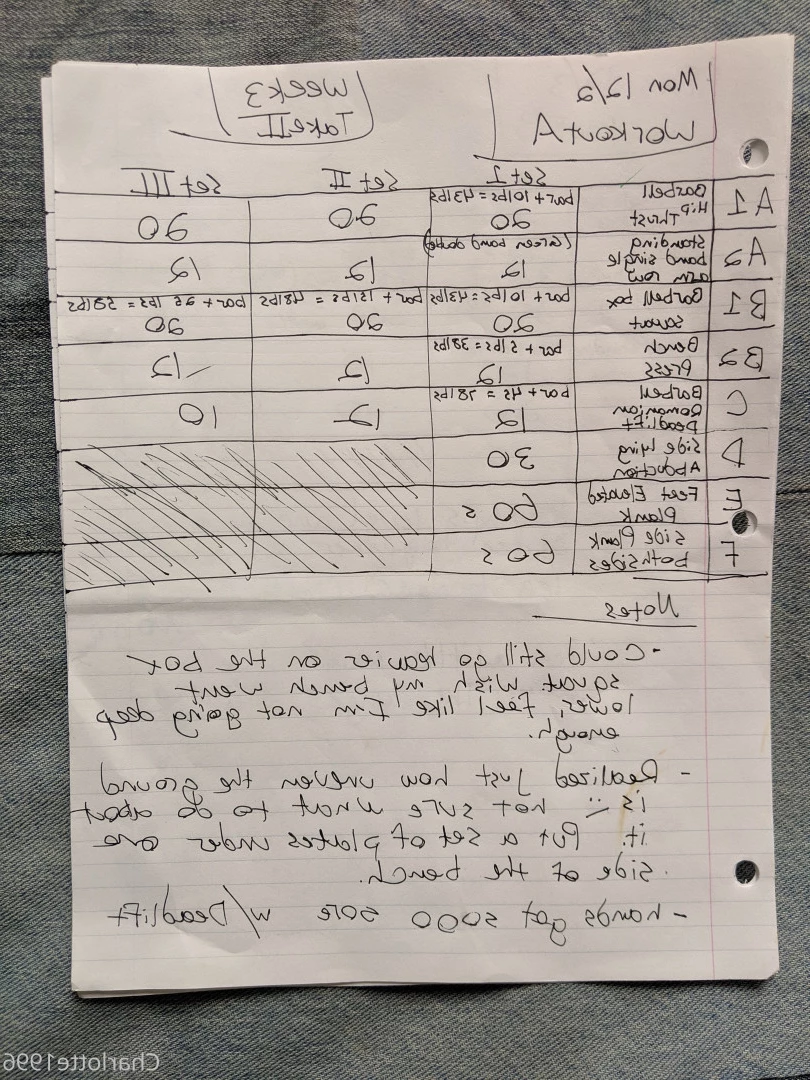 Mon 12/2
Workout A
Week 3
Take II
Set I Set II Set III
A1 Barbell Hip Thrust
bar + 10 lbs = 43 lbs
20 20 20
A2 Standing band single arm row
(Green band doubled)
12 12 12
B1 Barbell box squat
bar + 10 lbs = 43 lbs bar + 15 lbs = 48 lbs bar + 25 lbs = 58 lbs
20 20 20
B2 Bench Press
bar + 5 lbs = 38 lbs
12 12 12
C Barbell Romanian Deadlift
bar + 45 = 78 lbs
12 12 10
D Side lying Abduction
30
E Feet Elevated Plank
60 s
F Side Plank both sides
60 s
Notes
- Could still go heavier on the box
squat wish my bench went
lower, feel like I'm not going deep
enough.
- Realized just how uneven the ground
is :( not sure what to do about
it. Put a set of plates under one
side of the bench.
- hands got sooo sore w/ Deadlift
Charlotte1996